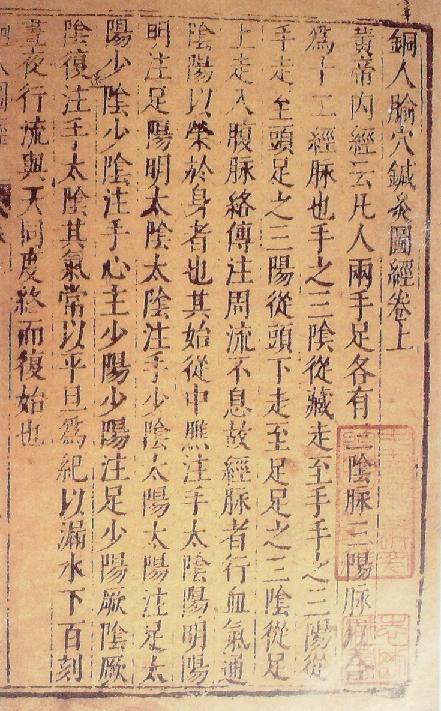 銅人腧穴鍼灸圖經卷上
黃帝內經云凡人兩手足各有三陰脉三陽脉以合
爲十二經脉也手之三陰從藏走至手手之三陽從
手走至頭足之三陽從頭下走至足足之三陰從足
上走入腹脉絡傳注周流不息故經脉者行血氣通
陰陽以榮於身者也其始從中膲注手太陰陽明陽
明注足陽明太陰太陰注手少陰太陽太陽注足太
陽少陰少陰注手心主少陽少陽注足少陽厥陰厥
陰復注手太陰其氣常以平旦爲紀以漏水下百刻
晝夜行流與天同度終而復始也